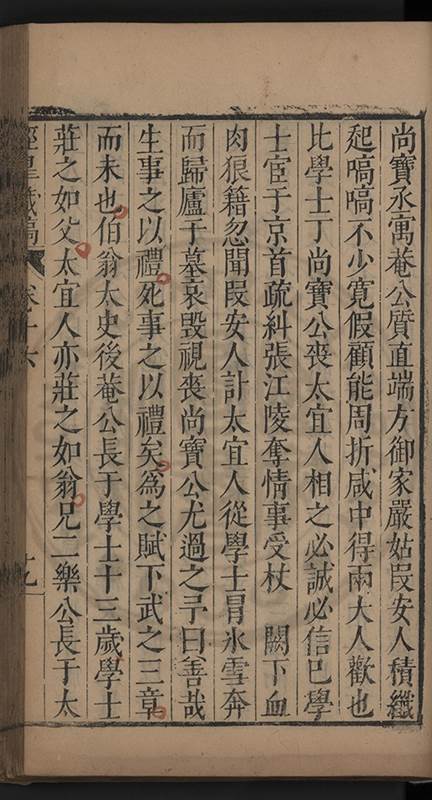 尚寶丞寓菴公質直端方御家嚴姑叚安人積纖
起嗃嗃不少寬假顧能周折咸中得兩大人歡也
比學士丁尚寶公喪太宜人相之必誠必信已學
士宦于京首疏糾張江陵奪情事受杖 闕下血
肉狼籍忽聞叚安人訃太宜人從學士冒氷雪奔
而歸廬于墓哀毀視喪尚寶公尤過之予曰善哉
生事之以禮死事之以禮矣為之賦下武之三章
而未也伯翁太史後菴公長于學士十三歲學士
莊之如父太宜人亦莊之如翁兄二樂公長于太
賜皇藏稿 卷十六 十九